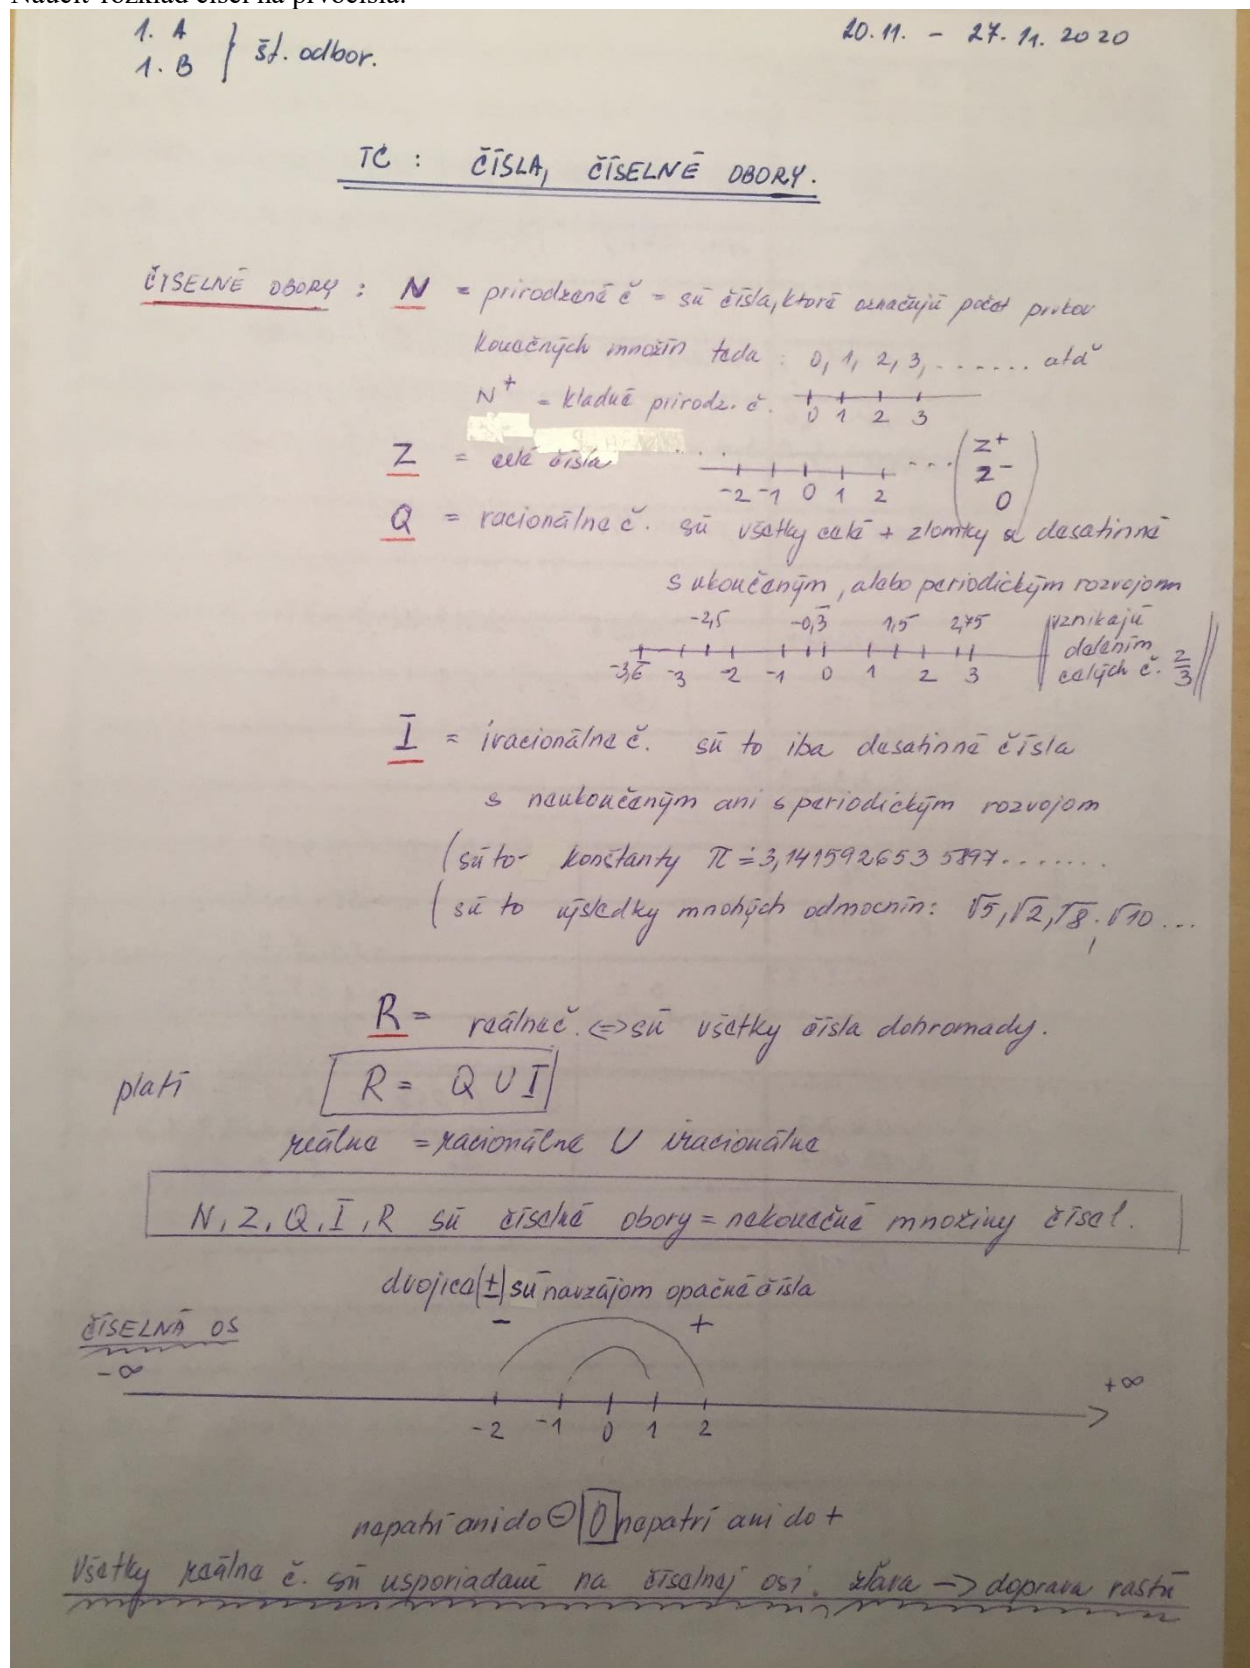 Naučiť rozklad čísel na prvočísla.
1. A
1. B } št. odbor.
20.11. - 27.11. 2020
TC : ČÍSLA, ČÍSELNÉ OBORY.
ČÍSELNÉ OBORY : N = prirodzené č = sú čísla, ktoré označujú počet prvkov
konečných množín teda : 0, 1, 2, 3, ....... atď
N+ = kladné prirodz. č. 0 1 2 3
Z = celé čísla ... -2 -1 0 1 2 ... ( Z+ Z- 0 )
Q = racionálne č. sú všetky celé + zlomky a desatinné
s ukončeným, alebo periodickým rozvojom
-2,5 -0,3̅ 1,5 2,75 vznikajú
delením
-3,6̅ -3 -2 -1 0 1 2 3 celých č. 2/3
I = iracionálne č. sú to iba desatinné čísla
s neukončeným ani s periodickým rozvojom
(sú to- konštanty π ≐ 3,1415926535897.......
(sú to výsledky mnohých odmocnín: √5, √2, √8, √10 ...
R = reálne č. <=> sú všetky čísla dohromady.
platí R = Q U I
reálne = racionálne U iracionálne
N, Z, Q, I, R sú číselné obory = nekonečné množiny čísel.
dvojica (±) sú navzájom opačné čísla
ČÍSELNÁ OS - +
-∞ +∞
-2 -1 0 1 2
nepatrí ani do ⊖ 0 nepatrí ani do +
Všetky reálne č. sú usporiadané na číselnej osi. zľava -> doprava rastú